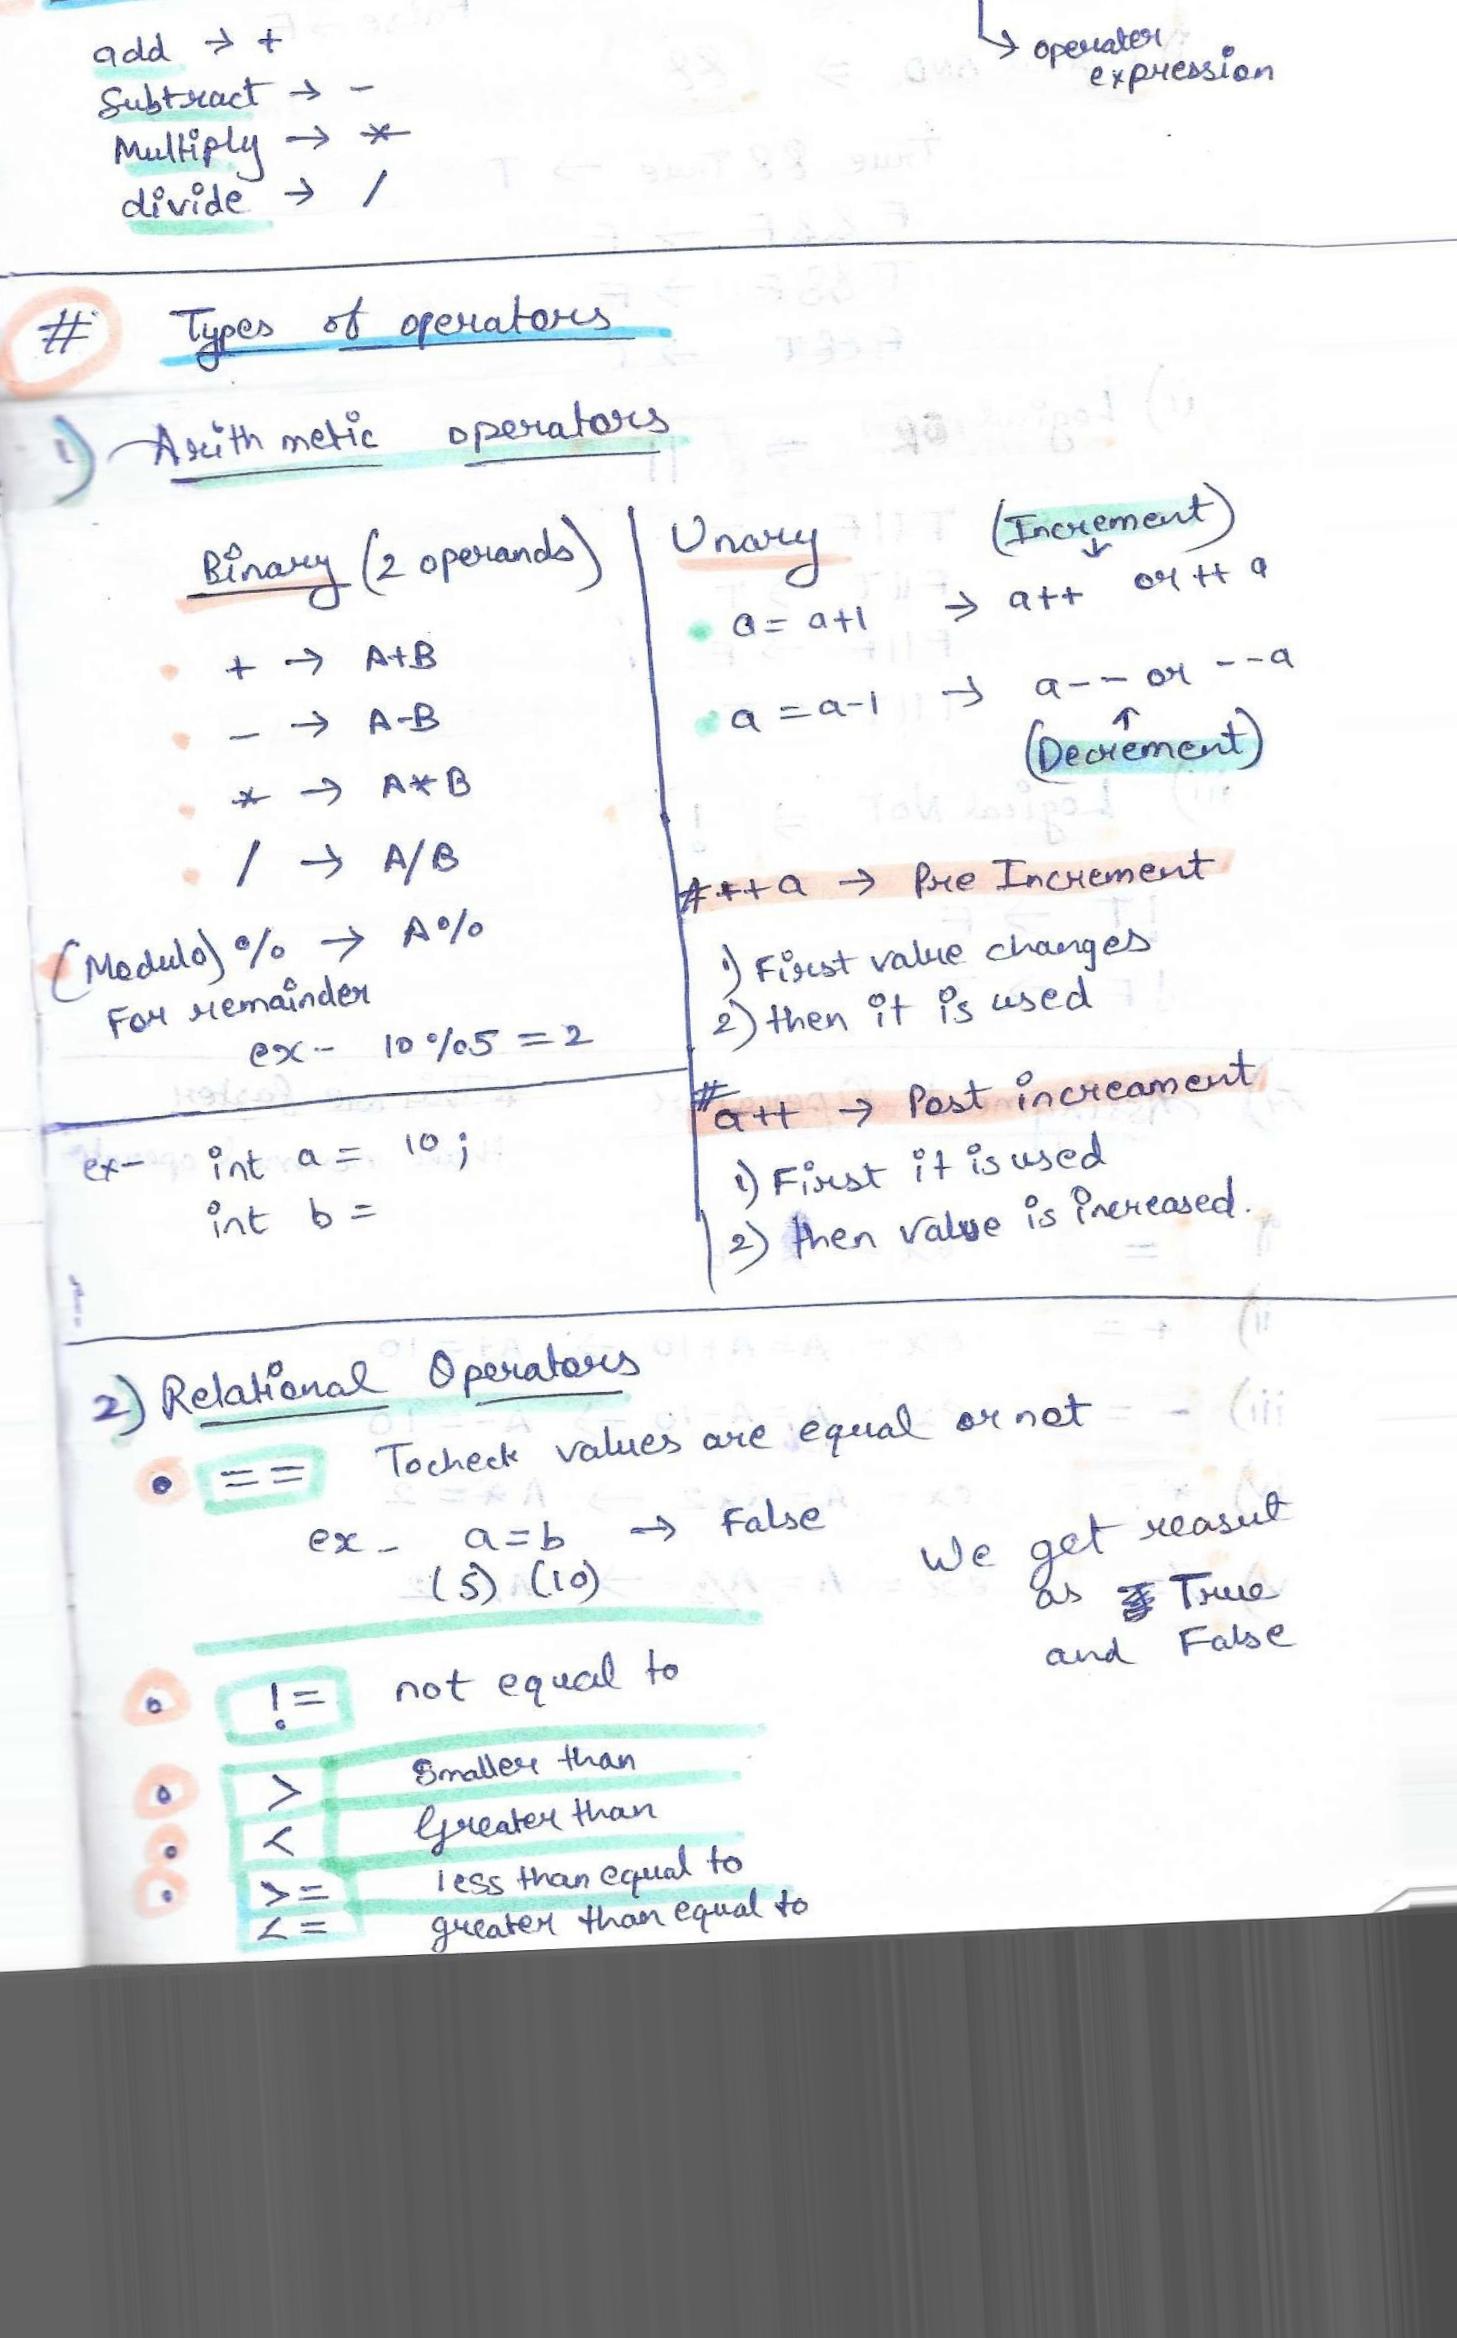 add → +
Subtract → -
Multiply → *
divide → /
↳ operater
expression
# Types of operators
1) Arithmetic operators
Binary (2 operands)
+ → A+B
- → A-B
* → A*B
/ → A/B
(Modulo) % → A%
For remainder
ex - 10%5 = 2
ex- int a = 10;
int b =
Unary
(Increment)
↓
a = a+1 → a++ or ++a
a = a-1 → a-- or --a
↑
(Decrement)
# ++a → Pre Increment
1) First value changes
2) then it is used
# a++ → Post increament
1) First it is used
2) then value is increased.
2) Relational Operators
• == To check values are equal or not
ex - a=b → False
(5) (10)
We get reasult
as True
and False
• != not equal to
• > Smaller than
• < Greater than
• >= less than equal to
<= greater than equal to